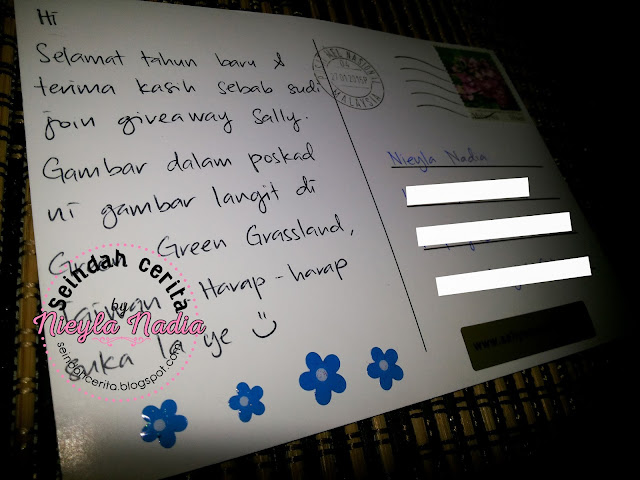 Hi
Selamat tahun baru &
terima kasih sebab sudi
join giveaway Sally.
Gambar dalam poskad
ni gambar langit di
Green Grassland,
Taiwan. Harap-harap
suka la ye
NASIONAL
MALAYSIA
Nieyla Nadia
www.
Seindah cerita
by
Nieyla Nadia
seindahcerita.blogspot.com